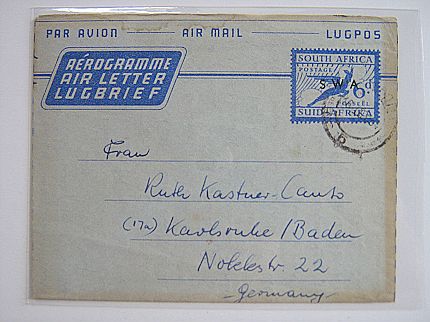 PAR AVION — AIR MAIL — LUGPOS
AÉROGRAMME
AIR LETTER
LUGBRIEF
SOUTH AFRICA
POSTAGE
S W A
6d.
POSSEEL
SUID-AFRIKA
Frau
Ruth Kastner-Canto
(17a) Karlsruhe/Baden
Nokkestr. 22
Germany